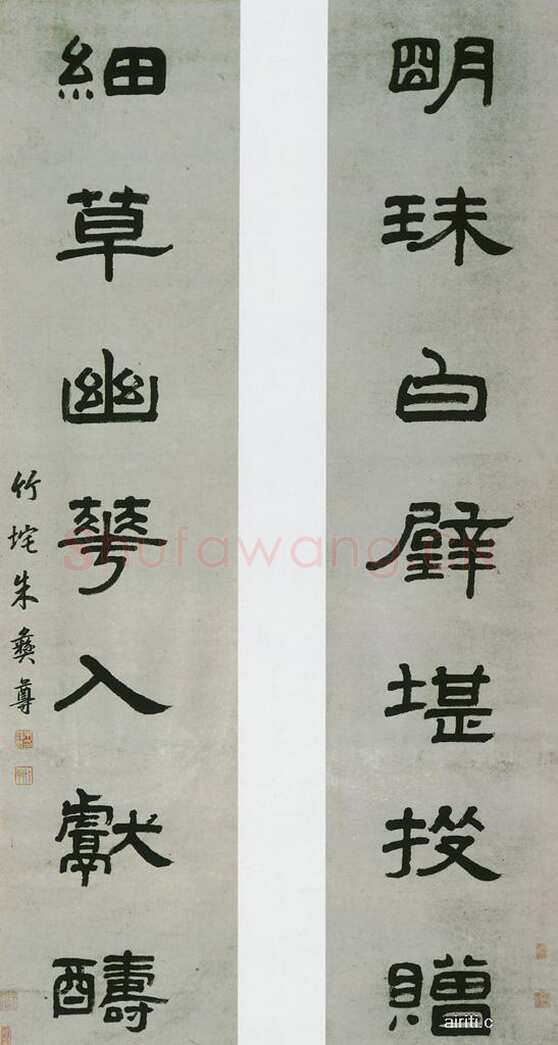 明珠白璧堪投贈
細草幽華入獻酬
竹垞朱彝尊
Shufawang.cn
airiti.c